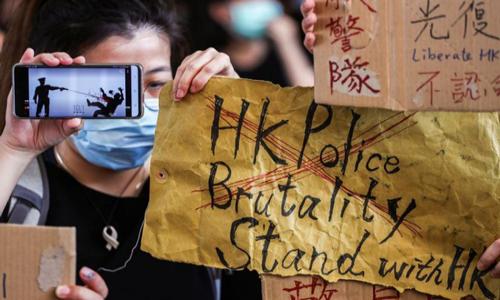 警隊
光復
Liberate HK
不認
HK Police
Brutality
Stand with HK